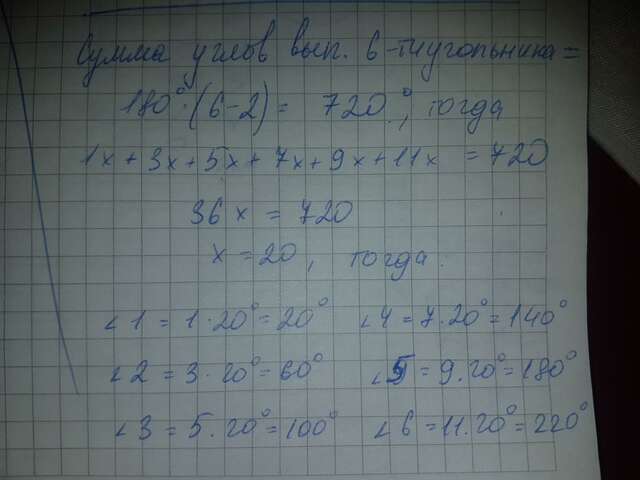 Сумма углов вып. 6-тиугольника =
180°·(6-2) = 720°, тогда
1x + 3x + 5x + 7x + 9x + 11x = 720
36x = 720
x = 20, тогда
∠1 = 1·20° = 20° ∠4 = 7·20° = 140°
∠2 = 3·20° = 60° ∠5 = 9·20° = 180°
∠3 = 5·20° = 100° ∠6 = 11·20° = 220°